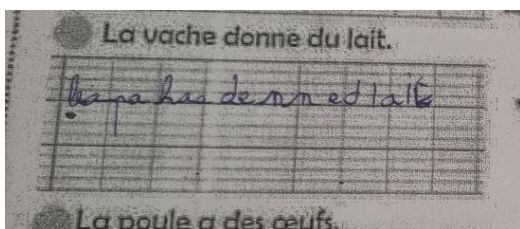 La vache donne du lait.
hapa hao denn ed lait
La poule a des œufs.